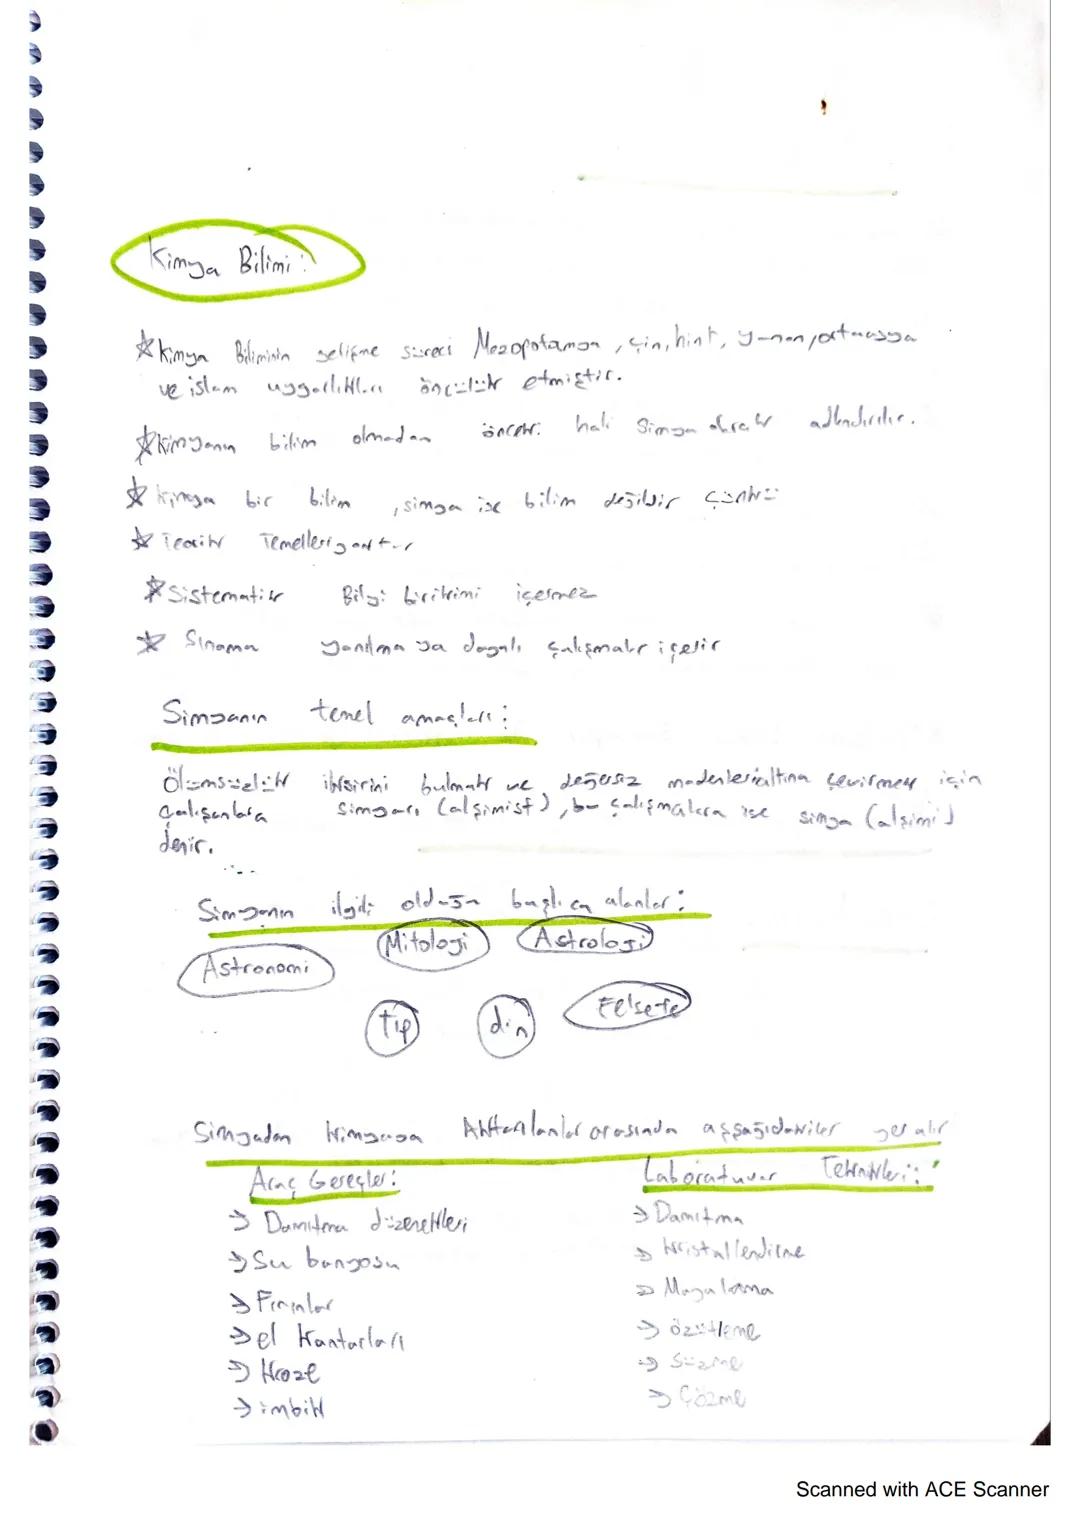 Kimya Bilimi:
☆ Kimya Biliminin gelişme süreci Mezopotamya, çin, hint, yunan, ortaasya
ve islam uygarlıkları öncülük etmiştir.
☆ Kimyanın bilim olmadan önceki hali Simya olarak adlandırılır.
☆ Kimya bir bilim, simya ise bilim değildir Çünkü
☆ Teorik Temelleri yoktur
☆ Sistematik Bilgi birikimi içermez
☆ Sınama yanılma ya dayalı çalışmalar içerir
Simyanın temel amaçları:
Ölümsüzlük iksirini bulmak ve değersiz madenleri altına çevirmek için
çalışanlara simyacı (alşimist), bu çalışmalara ise simya (alşimi)
denir.
Simyanın ilgili olduğu başlıca alanlar:
Mitoloji Astroloji
Astronomi
Tıp din Felsefe
Simyadan kimyaya Aktarılanlar arasında aşşağıdakiler yer alır
Araç Gereçler: Laboratuvar Teknikleri:
→ Damıtma düzenekleri → Damıtma
→ Su banyosu → kristallendirme
→ Fırınlar → Mayalama
→ el kantarları → özütleme
→ Kroze → Süzme
→ imbik → Çözme
Scanned with ACE Scanner